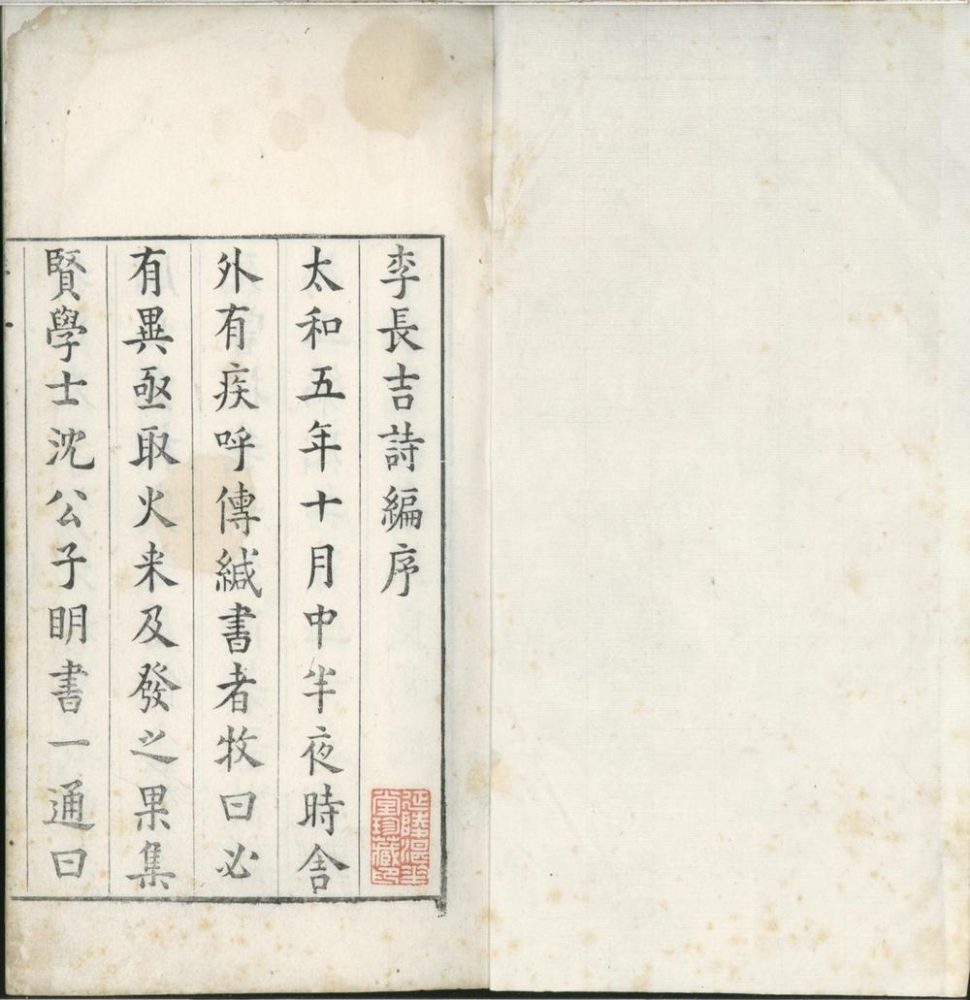 李長吉詩編序
太和五年十月中半夜時舎
外有疾呼傳緘書者牧曰必
有異亟取火来及發之果集
賢學士沈公子明書一通曰
堂珍藏印